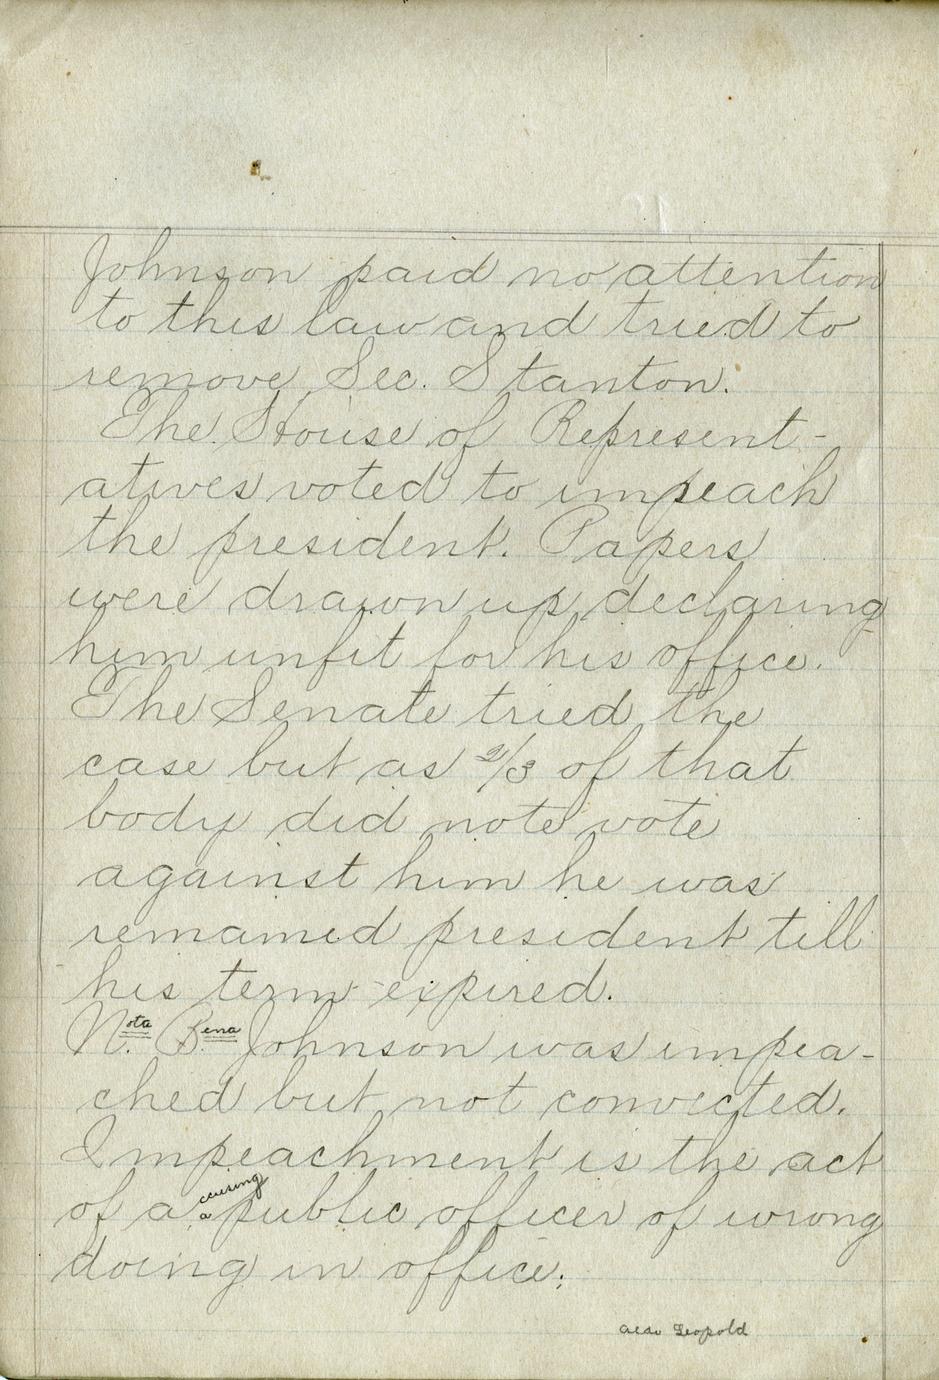 Johnson paid no attention
to this law and tried to
remove Sec. Stanton.
The House of Represent-
atives voted to impeach
the president. Papers
were drawn up declaring
him unfit for his office.
The Senate tried the
case but as 2/3 of that
body did note vote
against him he was
remained president till
his term expired.
Nota Bena Johnson was impea-
ched but not convicted.
Impeachment is the act
of accusing a public officer of wrong
doing in office.
Aldo Leopold